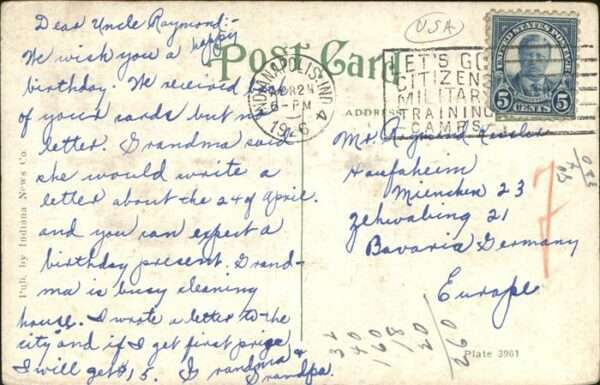 Dear Uncle Raymond:-
We wish you a happy
birthday. We received
of your cards but no
letter. Grandma said
she would write a
letter about the 24 of April.
and you can expect a
birthday present. Grand-
ma is busy cleaning
house. I wrote a letter to the
city and if I get first prize
I will get $15. Grandma &
Grandpa.
Pub. by Indiana News Co.
Post Card
(USA)
INDIANAPOLIS, IND.
APR 2
6-PM
1926
LET'S GO
CITIZENS
MILITARY
TRAINING
CAMPS
UNITED STATES POSTAGE
5 CENTS 5
ADDRESS
Mr. Raymond
Haufsheim
Muenchen 23
Bavaria Germany
Europe
7
Plate 3961